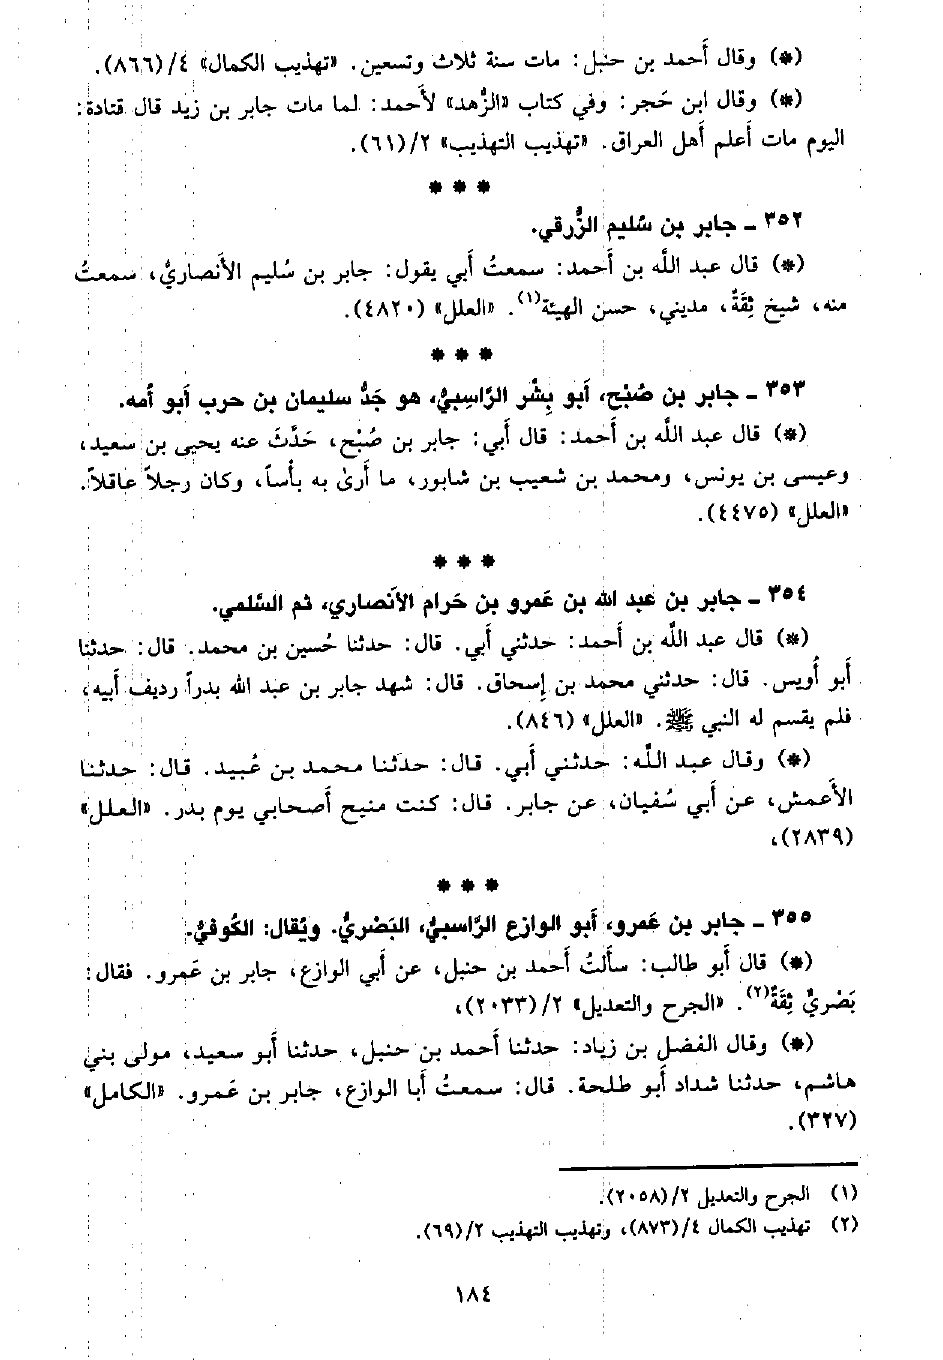 (*) وقال أَحمد بن حنبل: مات سنة ثلاث وتسعين. «تهذيب الكمال» ٤/(٨٦٦).
(*) وقال ابن حَجر: وفي كتاب «الزُّهد» لأَحمد: لما مات جابر بن زيد قال قتادة:
اليوم مات أَعلم أَهل العراق. «تهذيب التهذيب» ٢/(٦١).
* * *
٣٥٢ ـ جابر بن سُليم الزُّرقي.
(*) قال عبد اللَّه بن أَحمد: سمعتُ أَبي يقول: جابر بن سُليم الأَنصاريُّ، سمعتُ
منه، شيخ ثِقَةٌ، مديني، حسن الهيئة(١). «العلل» (٤٨٢٠).
* * *
٣٥٣ ـ جابر بن صُبْح، أَبو بِشْر الرَّاسِبيُّ، هو جَدُّ سليمان بن حرب أَبو أُمه.
(*) قال عبد اللَّه بن أَحمد: قال أَبي: جابر بن صُبْح، حَدَّثَ عنه يحيى بن سعيد،
وعيسى بن يونس، ومحمد بن شعيب بن شابور، ما أَرىٰ به بأْساً، وكان رجلاً عاقلاً.
«العلل» (٤٤٧٥).
* * *
٣٥٤ ـ جابر بن عبد الله بن عَمرو بن حَرام الأَنصاري، ثم السَّلمي.
(*) قال عبد اللَّه بن أَحمد: حدثني أَبي. قال: حدثنا حُسين بن محمد. قال: حدثنا
أَبو أُويس. قال: حدثني محمد بن إِسحاق. قال: شهد جابر بن عبد الله بدراً رديف أَبيه،
فلم يقسم له النبي ﷺ. «العلل» (٨٤٦).
(*) وقال عبد اللَّه: حدثني أَبي. قال: حدثنا محمد بن عُبيد. قال: حدثنا
الأَعمش، عن أَبي سُفيان، عن جابر. قال: كنت منيح أَصحابي يوم بدر. «العلل»
(٢٨٣٩)،
* * *
٣٥٥ ـ جابر بن عَمرو، أَبو الوازع الرَّاسبيُّ، البَصْريُّ. ويُقال: الكُوفيُّ.
(*) قال أَبو طالب: سأَلتُ أَحمد بن حنبل، عن أَبي الوازع، جابر بن عَمرو. فقال:
بَصْريٌّ ثِقَةٌ(٢). «الجرح والتعديل» ٢/(٢٠٣٣)،
(*) وقال الفضل بن زياد: حدثنا أَحمد بن حنبل، حدثنا أَبو سعيد، مولى بني
هاشم، حدثنا شداد أَبو طلحة. قال: سمعتُ أَبا الوازع، جابر بن عَمرو. «الكامل»
(٣٢٧).
(١) الجرح والتعديل ٢/(٢٠٥٨).
(٢) تهذيب الكمال ٤/(٨٧٣)، وتهذيب التهذيب ٢/(٦٩).
١٨٤